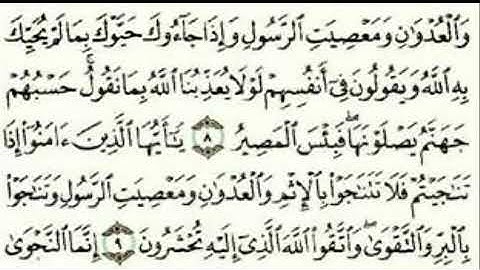 وَٱلْعُدْوَٰنِ وَمَعْصِيَتِ ٱلرَّسُولِ وَإِذَا جَآءُوكَ حَيَّوْكَ بِمَا لَمْ يُحَيِّكَ
بِهِ ٱللَّهُ وَيَقُولُونَ فِىٓ أَنفُسِهِمْ لَوْلَا يُعَذِّبُنَا ٱللَّهُ بِمَا نَقُولُ ۚ حَسْبُهُمْ
جَهَنَّمُ يَصْلَوْنَهَا ۖ فَبِئْسَ ٱلْمَصِيرُ ٨ يَـٰٓأَيُّهَا ٱلَّذِينَ ءَامَنُوٓا۟ إِذَا
تَنَـٰجَيْتُمْ فَلَا تَتَنَـٰجَوْا۟ بِٱلْإِثْمِ وَٱلْعُدْوَٰنِ وَمَعْصِيَتِ ٱلرَّسُولِ وَتَنَـٰجَوْا۟
بِٱلْبِرِّ وَٱلتَّقْوَىٰ ۖ وَٱتَّقُوا۟ ٱللَّهَ ٱلَّذِىٓ إِلَيْهِ تُحْشَرُونَ ٩ إِنَّمَا ٱلنَّجْوَىٰ